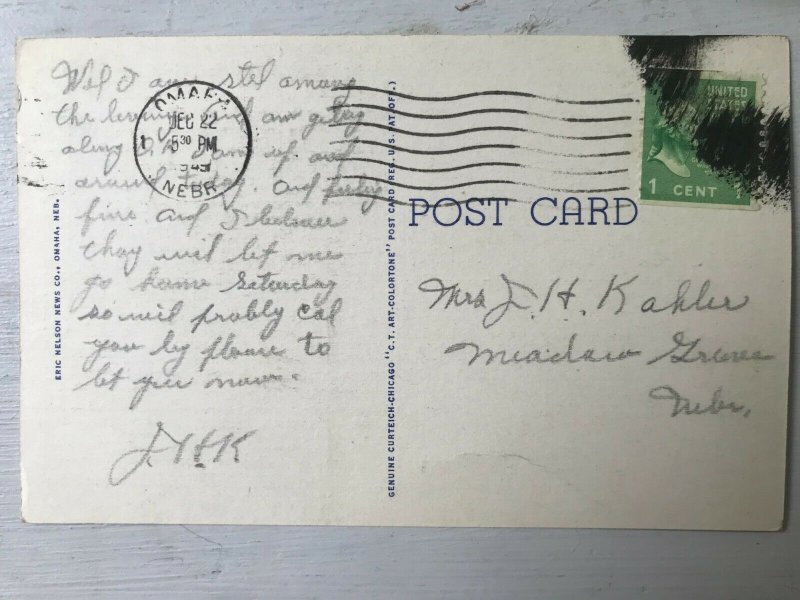 Wel I am stel among
the living and am geting
along O.K. am up and
around to day. and feeling
fine and I beleave
thay wil let me
go home Saturday
so wil probly cal
you by phone to
let you now.
J.H.K
OMAHA
DEC 22
1 5 30 PM
NEBR.
UNITED
STATES
1 CENT 1
POST CARD
Mrs J. H. Kahler
Meadow Grove
Nebr.
ERIC NELSON NEWS CO., OMAHA, NEB.
GENUINE CURTEICH-CHICAGO "C.T. ART-COLORTONE" POST CARD (REG. U.S. PAT. OFF.)